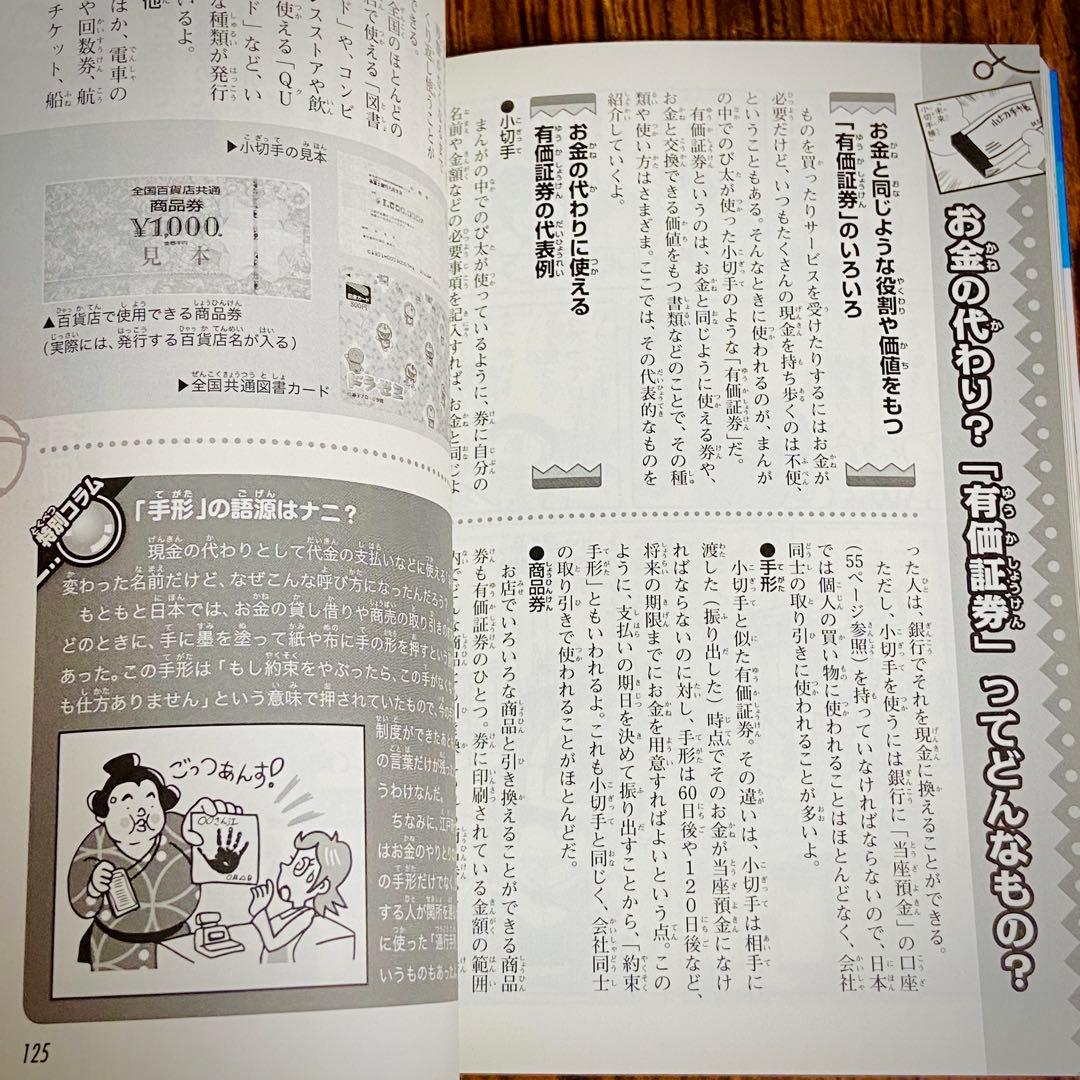 お金の代わり？「有価証券」ってどんなもの？
お金と同じような役割や価値をもつ
「有価証券」のいろいろ
ものを買ったりサービスを受けたりするにはお金が
必要だけど、いつもたくさんの現金を持ち歩くのは不便、
ということもある。そんなときに使われるのが、まんが
の中でのび太が使った小切手のような「有価証券」だ。
有価証券というのは、お金と同じように使える券や、
お金と交換できる価値をもつ書類などのことで、その種
類や使い方はさまざま。ここでは、その代表的なものを
紹介していくよ。
お金の代わりに使える
有価証券の代表例
●小切手
まんがの中でのび太が使っているように、券に自分の
名前や金額などの必要事項を記入すれば、お金と同じよ
った人は、銀行でそれを現金に換えることができる。
ただし、小切手を使うには銀行に「当座預金」の口座
（55ページ参照）を持っていなければならないので、日本
では個人の買い物に使われることはほとんどなく、会社
同士の取り引きに使われることが多いよ。
●手形
小切手と似た有価証券。その違いは、小切手は相手に
渡した（振り出した）時点でそのお金が当座預金になけ
ればならないのに対し、手形は60日後や120日後など、
将来の期限までにお金を用意すればよいという点。この
ように、支払いの期日を決めて振り出すことから、「約束
手形」ともいわれるよ。これも小切手と同じく、会社同士
の取り引きで使われることがほとんどだ。
●商品券
お店でいろいろな商品と引き換えることができる商品
券も有価証券のひとつ。券に印刷されている金額の範囲
くり返し使うことが
できる。
全国のほとんどの
店で使える「図書
ド」や、コンビ
ンストアや飲
使える「QU
ド」など、い
な種類が発行
るよ。
他
ほか、電車の
や回数券、航
チケット、船
▶小切手の見本
全国百貨店共通
商品券
¥1,000
見本
▲百貨店で使用できる商品券
（実際には、発行する百貨店名が入る）
▶全国共通図書カード
図書カード
500円
ドラえもん
特別コラム
「手形」の語源はナニ？
現金の代わりとして代金の支払いなどに使える
変わった名前だけど、なぜこんな呼び方になったんだろう？
もともと日本では、お金の貸し借りや商売の取り引きの
どのときに、手に墨を塗って紙や布に手の形を押すという
あった。この手形は「もし約束をやぶったら、この手がなく
も仕方ありません」という意味で押されていたもので、
制度ができたあと
の言葉だけが残った
うわけなんだ。
ちなみに、江戸時
はお金のやりとりの
の手形だけでなく
する人が関所を通
に使った「通行手形
いうものもあった
ごっつあんす！
〇〇さん江
125